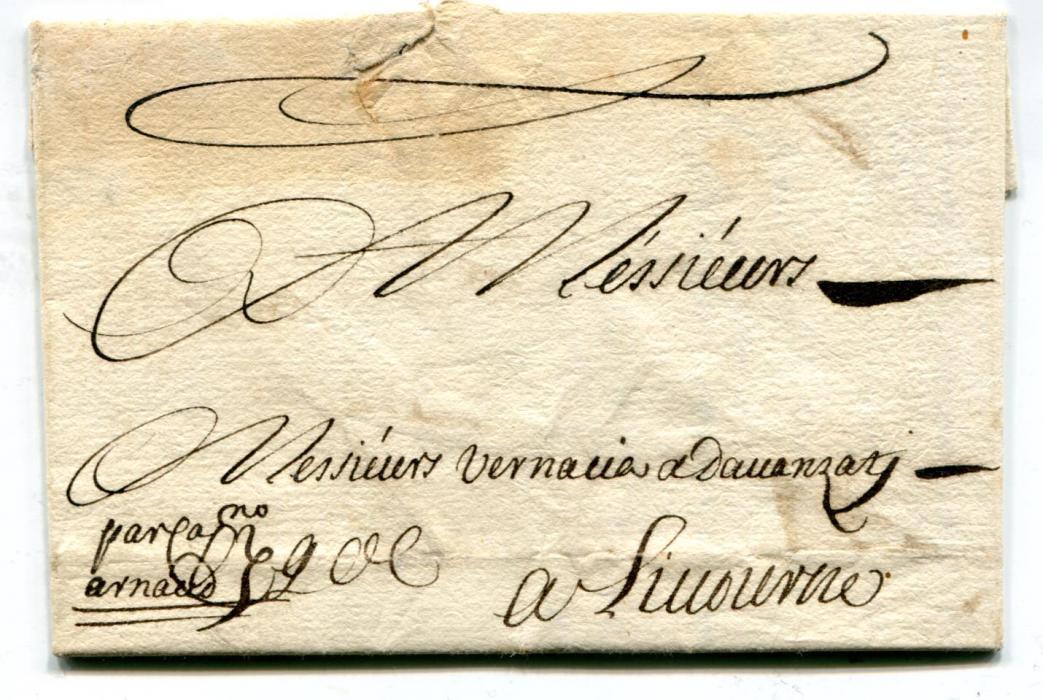 A Méssiéurs
Messiéurs Vernacia & Dauanzatj
par Capno
arnaud
a Liuourne